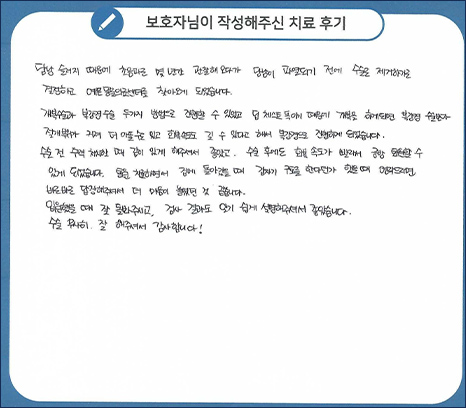 보호자님이 작성해주신 치료 후기
담낭 슬러지 때문에 초음파로 몇 년간 관찰해 오다가 담낭이 파열되기 전에 수술로 제거하기로
결정하고 예은동물의료센터를 찾아오게 되었습니다.
개복수술과 복강경 수술 두가지 방법으로 진행할 수 있었고 덩치 때문에 개복을 하게되면 복강경 수술보다
절개부위가 커져 더 아플 수도 있고 회복속도도 길 수 있다고 해서 복강경으로 진행하게 되었습니다.
수술 전 수액 처치할 때 같이 있게 해주셔서 좋았고, 수술 후에도 회복 속도가 빨라서 금방 퇴원할 수
있게 되었습니다. 퇴원 하면서 집에 돌아갔을 때 갑자기 구토를 한다던가 했을 때 연락드리면
바로바로 답장해주셔서 더 마음이 놓였던 것 같습니다.
입원했을 때 잘 돌봐주시고, 검사 결과도 알기 쉽게 설명해주셔서 좋았습니다.
수술 무사히 잘 해주셔서 감사합니다!